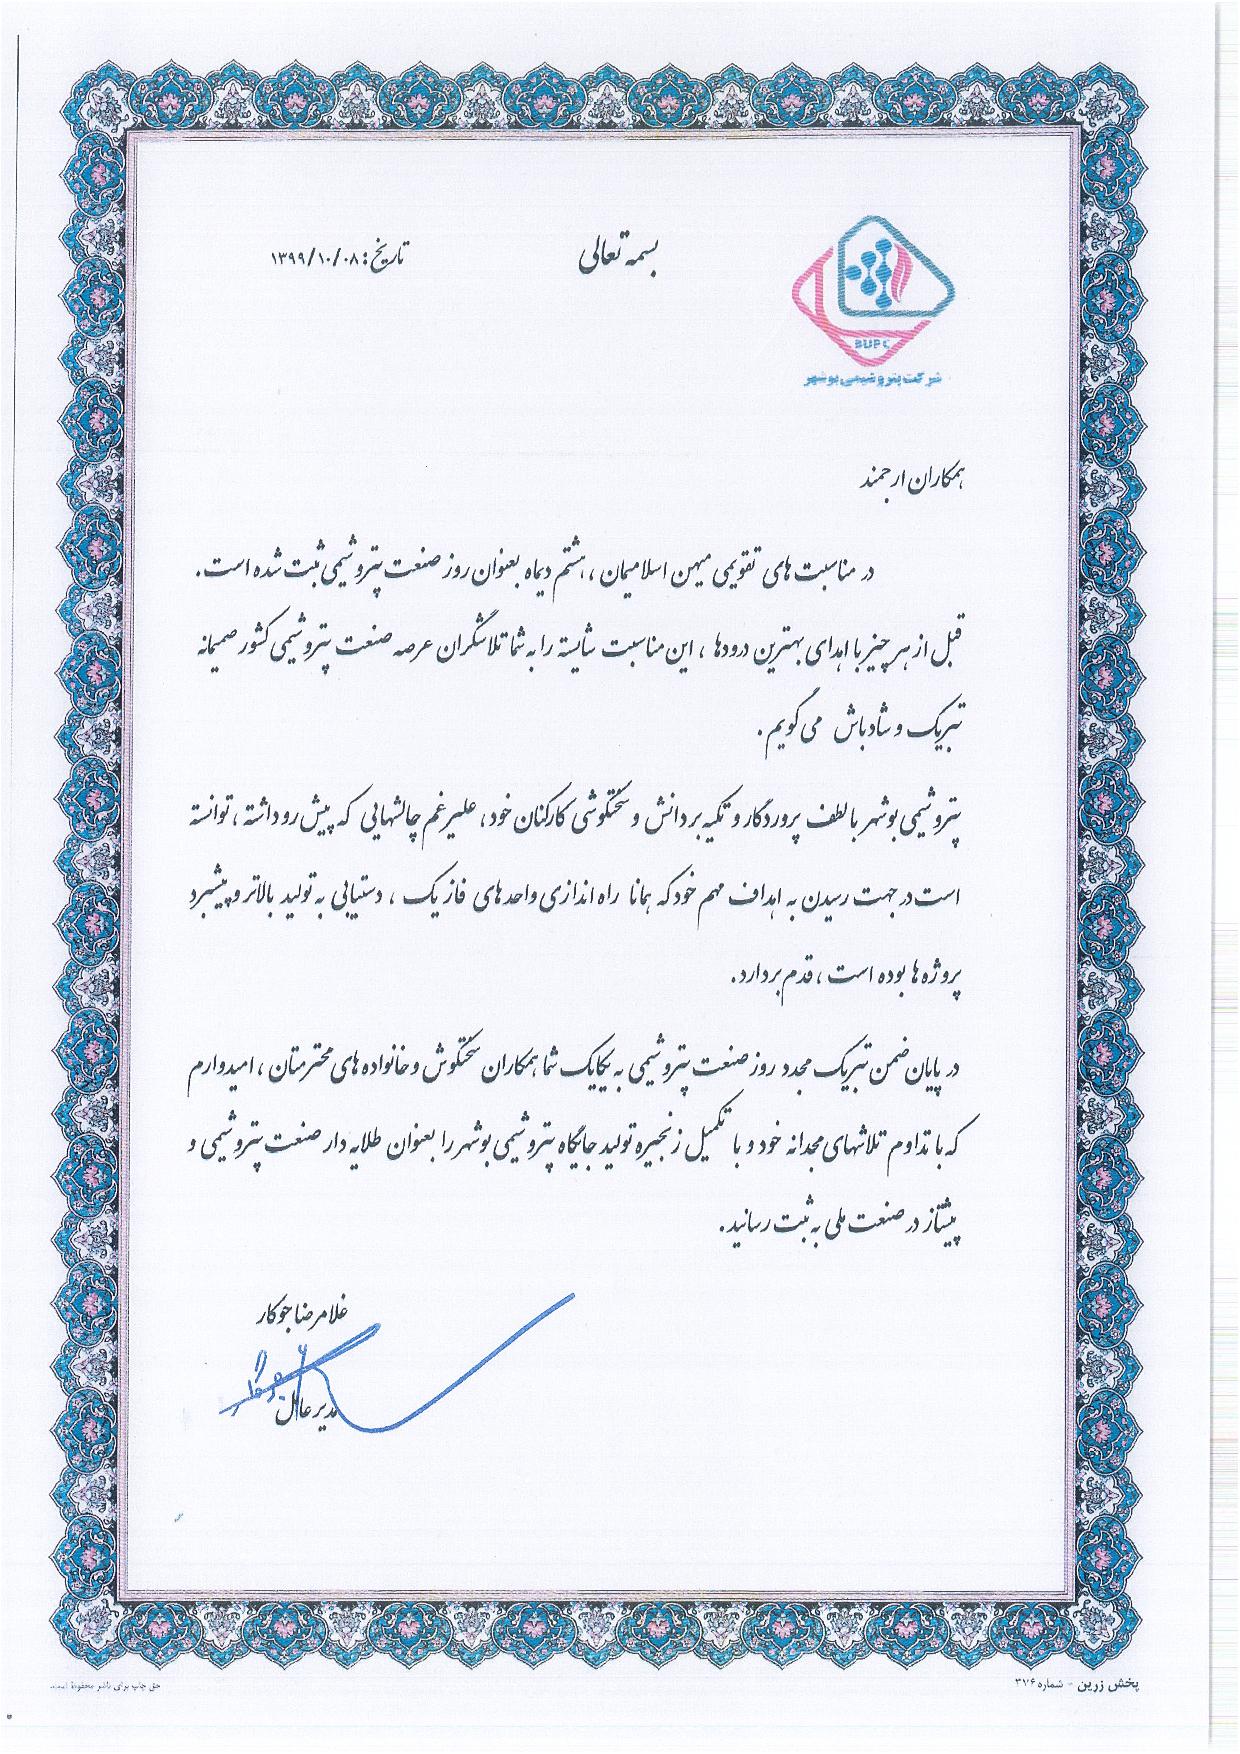 بسمه تعالی
تاریخ: ۱۳۹۹/۱۰/۰۸
BUPC
شرکت پتروشیمی بوشهر
همکاران ارجمند
در مناسبت های تقویمی میهن اسلامیمان ، هشتم دیماه بعنوان روز صنعت پتروشیمی ثبت شده است.
قبل از هر چیز با اهدای بهترین درودها ، این مناسبت شایسته را به شما تلاشگران عرصه صنعت پتروشیمی کشور صمیمانه
تبریک و شادباش می گویم.
پتروشیمی بوشهر با لطف پروردگار و تکیه بر دانش و سختکوشی کارکنان خود، علیرغم چالشهایی که پیش رو داشته ، توانسته
است در جهت رسیدن به اهداف مهم خود که همانا راه اندازی واحد های فاز یک ، دستیابی به تولید بالاتر و پیشبرد
پروژه ها بوده است ، قدم بردارد.
در پایان ضمن تبریک مجدد روز صنعت پتروشیمی به یکایک شما همکاران سختکوش و خانواده های محترمتان ، امیدوارم
که با تداوم تلاشهای مجدانه خود و با تکمیل زنجیره تولید جایگاه پتروشیمی بوشهر را بعنوان طلایه دار صنعت پتروشیمی و
پیشتاز در صنعت ملی به ثبت رسانید.
غلامرضا جوکار
مدیر عامل
پخش زرین - شماره ۳۷۶
حق چاپ برای ناشر محفوظ است.